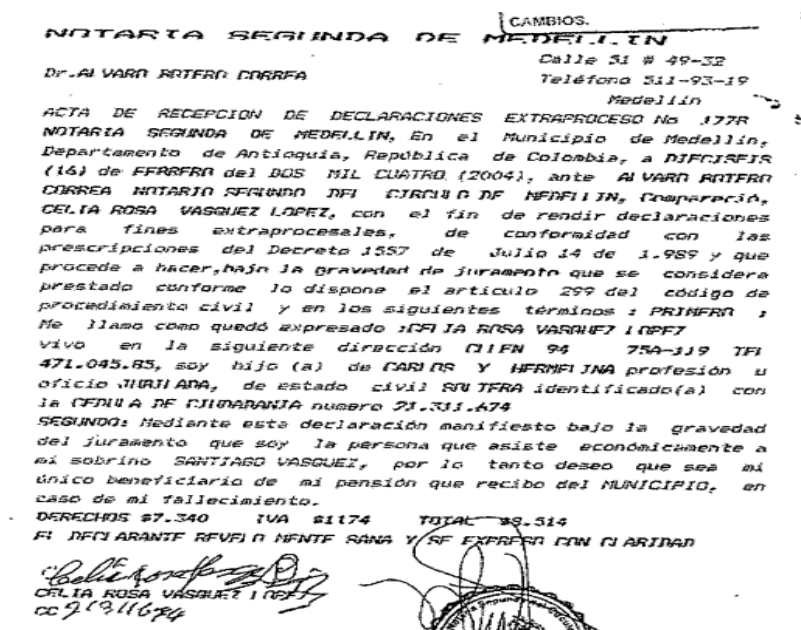 CAMBIOS.
NOTARIA SEGUNDA DE MEDELLIN
Calle 51 # 49-32
Dr. ALVARO BOTERO CORREA
Teléfono 511-93-19
Medellín
ACTA DE RECEPCION DE DECLARACIONES EXTRAPROCESO No 1778
NOTARIA SEGUNDA DE MEDELLIN, En el Municipio de Medellín,
Departamento de Antioquia, República de Colombia, a DIECISEIS
(16) de FEBRERO del DOS MIL CUATRO (2004), ante ALVARO BOTERO
CORREA NOTARIO SEGUNDO DEL CIRCULO DE MEDELLIN, Compareció,
CELIA ROSA VASQUEZ LOPEZ, con el fin de rendir declaraciones
para fines extraprocesales, de conformidad con las
prescripciones del Decreto 1557 de Julio 14 de 1.989 y que
procede a hacer, bajo la gravedad de juramento que se considera
prestado conforme lo dispone el artículo 299 del código de
procedimiento civil y en los siguientes términos : PRIMERO :
Me llamo como quedó expresado :CELIA ROSA VASQUEZ LOPEZ
vivo en la siguiente dirección 94 75A-119 TEL
471.045.85, soy hijo (a) de CARLOS Y HERMELINA profesión u
oficio JUBILADA, de estado civil SOLTERA identificado(a) con
la CEDULA DE CIUDADANIA numero 21.311.674
SEGUNDO: Mediante esta declaración manifiesto bajo la gravedad
del juramento que soy la persona que asiste económicamente a
mi sobrino SANTIAGO VASQUEZ, por lo tanto deseo que sea mi
único beneficiario de mi pensión que recibo del MUNICIPIO, en
caso de mi fallecimiento.
DERECHOS $7.340 IVA $1174 TOTAL $8.514
EL DECLARANTE REVELO MENTE SANA Y SE EXPRESO CON CLARIDAD
CELIA ROSA VASQUEZ LOPEZ
CC 21311674